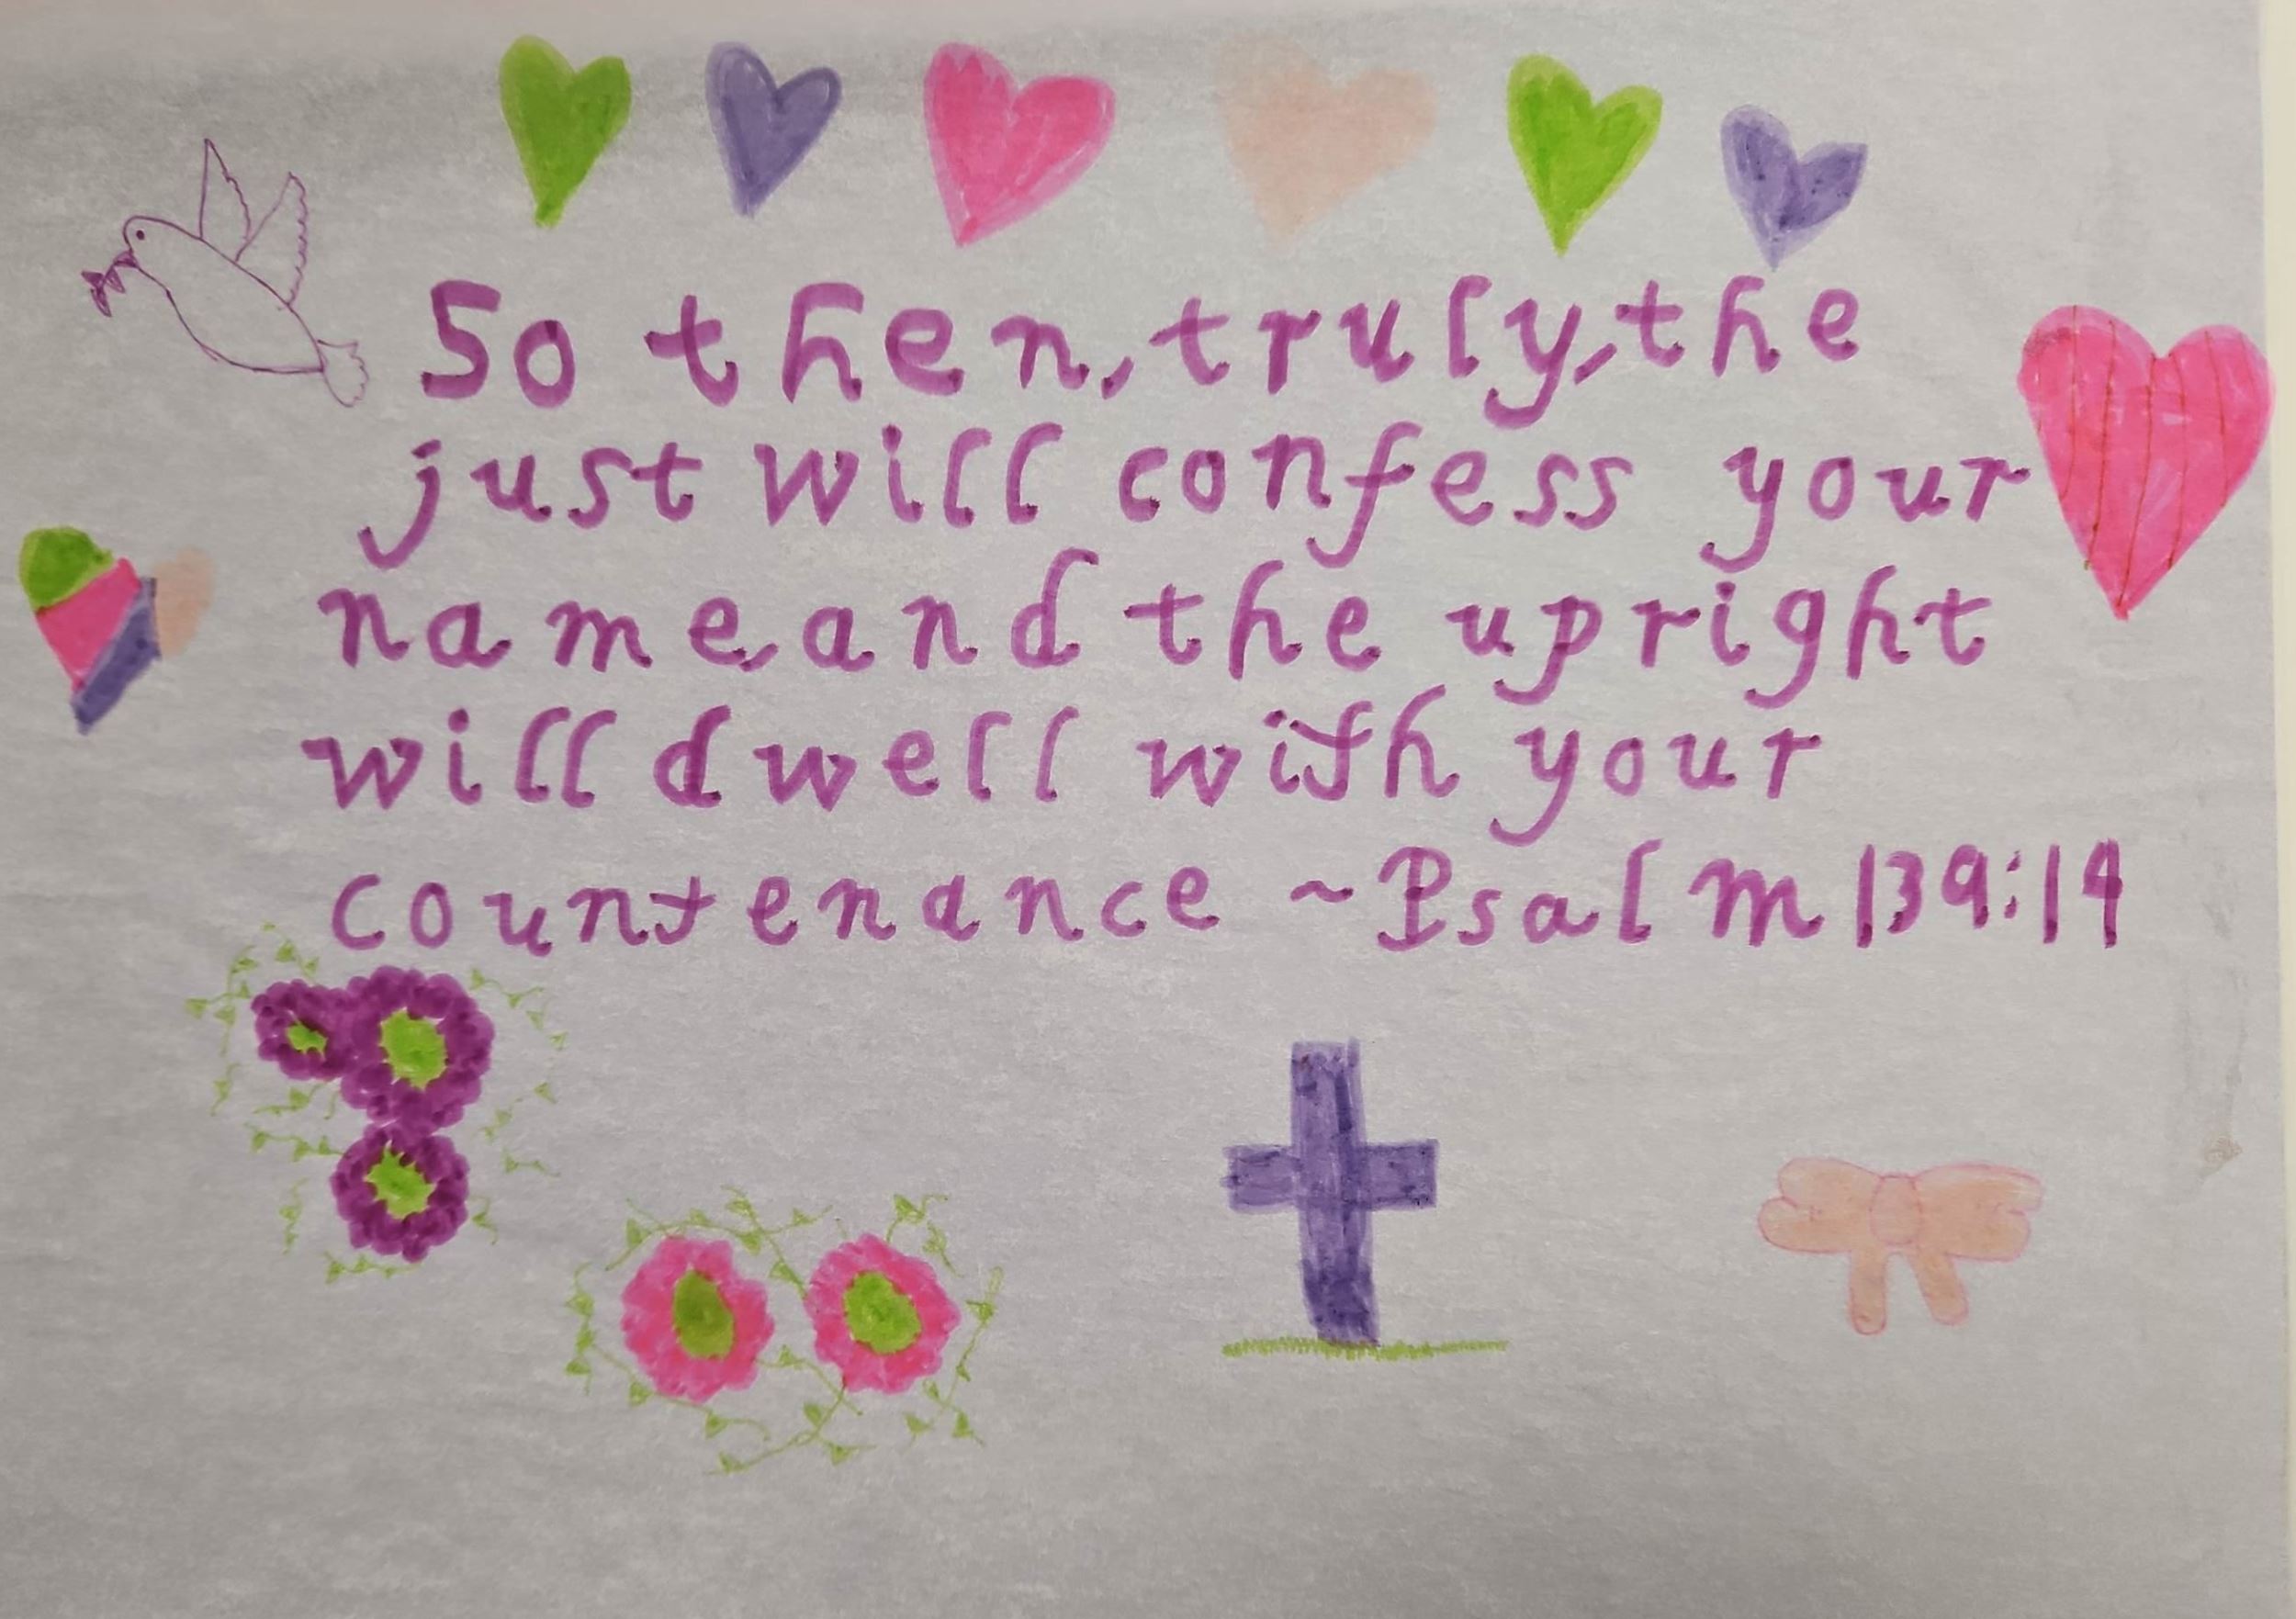 So then, truly, the
just will confess your
name, and the upright
will dwell with your
countenance ~Psalm 139:14